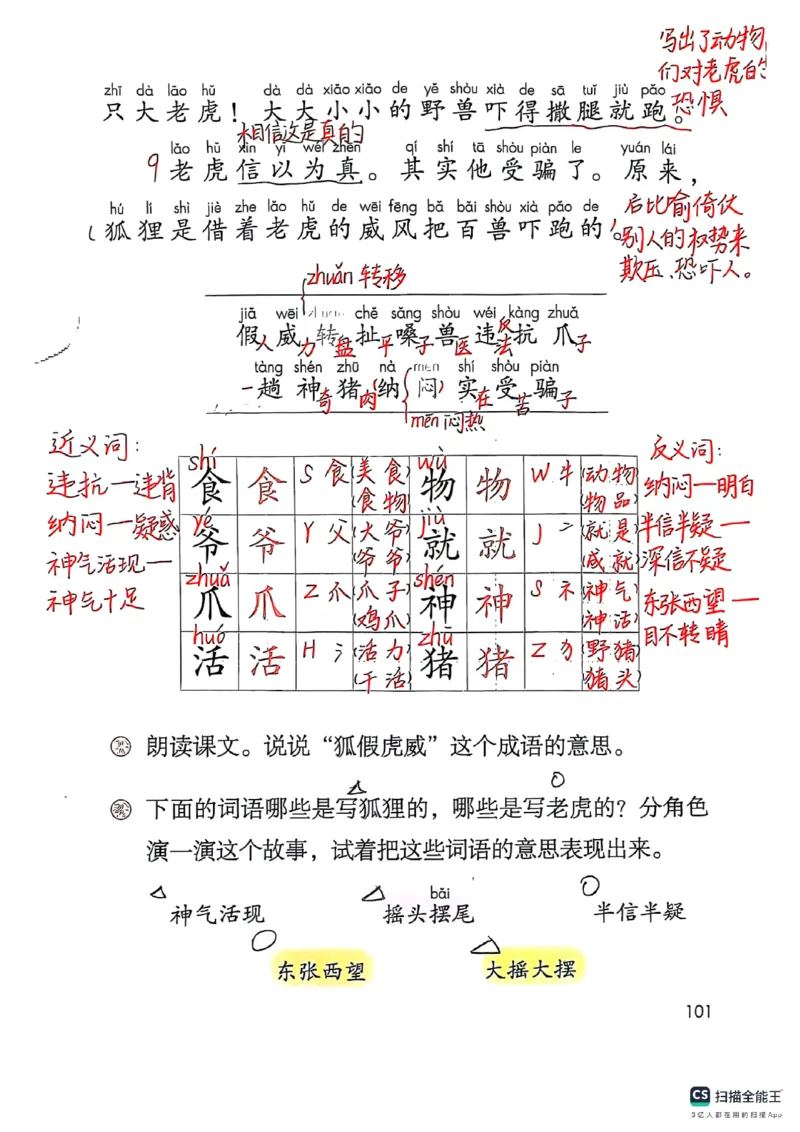 写出了动物
们对老虎的
恐惧
zhī dà lǎo hǔ dà dà xiǎo xiǎo de yě shòu xià de sā tuǐ jiù pǎo
只大老虎！大大小小的野兽吓得撒腿就跑。
相信这是真的
lǎo hǔ xìn yǐ wéi zhēn qí shí tā shòu piàn le yuán lái
9 老虎信以为真。其实他受骗了。原来，
hú li shì jiè zhe lǎo hǔ de wēi fēng bǎ bǎi shòu xià pǎo de
狐狸是借着老虎的威风把百兽吓跑的。
后比喻倚仗
别人的权势来
欺压、恐吓人。
zhuǎn 转移
jiǎ wēi zhuàn chě sǎng shòu wéi kàng zhuǎ
假人威力转盘扯平嗓子兽医违反法抗爪子
tàng shén zhū nà mèn shí shòu piàn
一趟神奇猪肉纳（闷）实在受苦骗子
mēn 闷热
近义词：
违抗—违背
纳闷—疑惑
神气活现—
神气十足
shí wù
食 食 S 食 （美食） 物 物 W 牜 （动物）
（食物） （物品）
yé jiù
爷 爷 Y 父 （大爷） 就 就 J 亠 （就是）
（爷爷） （成就）
zhuǎ shén
爪 爪 Z 爪 （爪子） 神 神 S 礻 （神气）
（鸡爪） （神活）
huó zhū
活 活 H 氵 （活力） 猪 猪 Z 犭 （野猪）
（干活） （猪头）
反义词：
纳闷—明白
半信半疑—
深信不疑
东张西望—
目不转睛
朗读课文。说说“狐假虎威”这个成语的意思。
下面的词语哪些是写狐狸的，哪些是写老虎的？分角色
演一演这个故事，试着把这些词语的意思表现出来。
bǎi
神气活现 摇头摆尾 半信半疑
东张西望 大摇大摆
101
CS 扫描全能王
3亿人都在用的扫描App